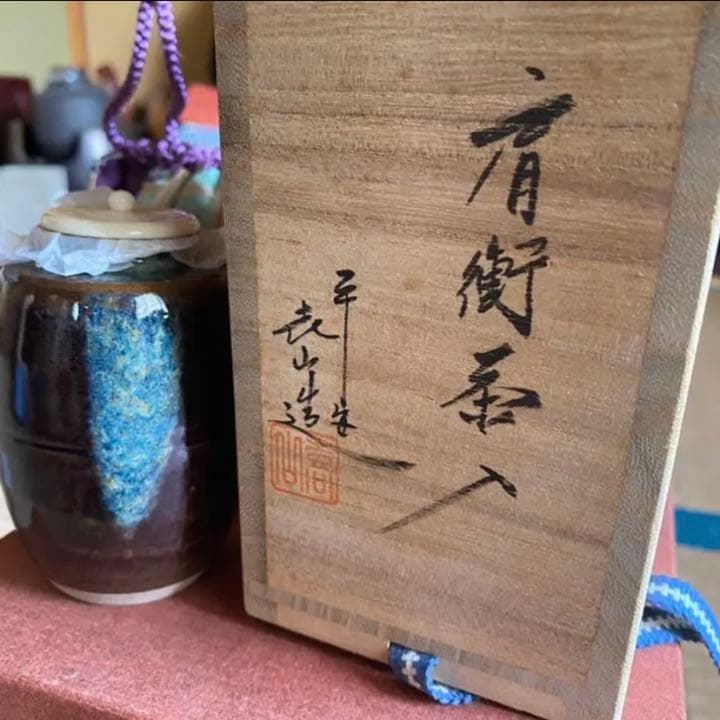 肩衝茶入
平安
喜山造